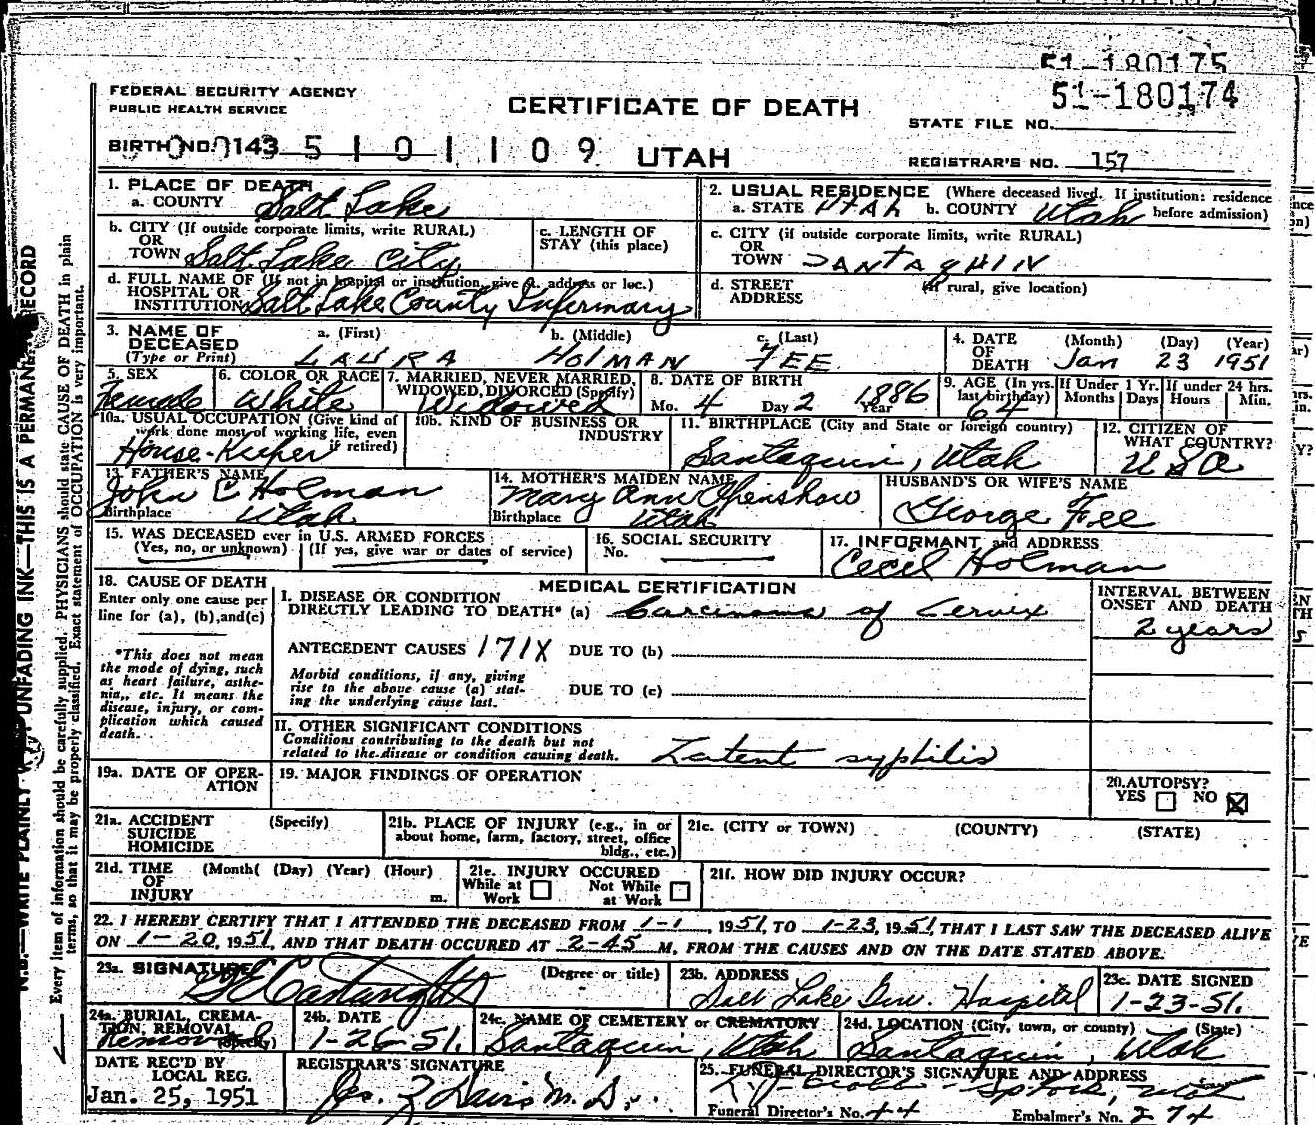 51-180175
51-180174
FEDERAL SECURITY AGENCY
PUBLIC HEALTH SERVICE
CERTIFICATE OF DEATH
STATE FILE NO.
BIRTH NO. 0143 5 1 0 1 1 0 9 UTAH
REGISTRAR'S NO. 157
1. PLACE OF DEATH
a. COUNTY Salt Lake
2. USUAL RESIDENCE (Where deceased lived. If institution: residence before admission)
a. STATE UTAH b. COUNTY Utah
b. CITY (If outside corporate limits, write RURAL)
OR
TOWN Salt Lake City
c. LENGTH OF
STAY (this place)
c. CITY (if outside corporate limits, write RURAL)
OR
TOWN SANTAQUIN
d. FULL NAME OF (If not in hospital or institution, give st. address or loc.)
HOSPITAL OR
INSTITUTION Salt Lake County Infirmary
d. STREET (If rural, give location)
ADDRESS
3. NAME OF
DECEASED
(Type or Print)
a. (First) b. (Middle) c. (Last)
LAURA HOLMAN FEE
4. DATE
OF
DEATH
(Month) (Day) (Year)
Jan 23 1951
5. SEX
Female
6. COLOR OR RACE
White
7. MARRIED, NEVER MARRIED,
WIDOWED, DIVORCED (Specify)
Widowed
8. DATE OF BIRTH
Mo. 4 Day 2 Year 1886
9. AGE (In yrs.
last birthday)
64
If Under 1 Yr.
Months Days
If under 24 hrs.
Hours Min.
10a. USUAL OCCUPATION (Give kind of
work done most of working life, even
if retired)
House-Keeper
10b. KIND OF BUSINESS OR
INDUSTRY
11. BIRTHPLACE (City and State or foreign country)
Santaquin, Utah
12. CITIZEN OF
WHAT COUNTRY?
USA
13. FATHER'S NAME
John E Holman
Birthplace Utah
14. MOTHER'S MAIDEN NAME
Mary Ann Openshaw
Birthplace Utah
HUSBAND'S OR WIFE'S NAME
George Fee
15. WAS DECEASED ever in U.S. ARMED FORCES
(Yes, no, or unknown) (If yes, give war or dates of service)
16. SOCIAL SECURITY
No.
17. INFORMANT and ADDRESS
Cecil Holman
18. CAUSE OF DEATH
Enter only one cause per
line for (a), (b), and (c)
*This does not mean
the mode of dying, such
as heart failure, asthe-
nia, etc. It means the
disease, injury, or com-
plication which caused
death.
MEDICAL CERTIFICATION
I. DISEASE OR CONDITION
DIRECTLY LEADING TO DEATH* (a) Carcinoma of Cervix
INTERVAL BETWEEN
ONSET AND DEATH
2 years
ANTECEDENT CAUSES 171X DUE TO (b)
Morbid conditions, if any, giving
rise to the above cause (a) stat-
ing the underlying cause last.
DUE TO (c)
II. OTHER SIGNIFICANT CONDITIONS
Conditions contributing to the death but not
related to the disease or condition causing death.
Latent syphilis
19a. DATE OF OPER-
ATION
19. MAJOR FINDINGS OF OPERATION
20. AUTOPSY?
YES NO X
21a. ACCIDENT (Specify)
SUICIDE
HOMICIDE
21b. PLACE OF INJURY (e.g., in or
about home, farm, factory, street, office
bldg., etc.)
21c. (CITY or TOWN) (COUNTY) (STATE)
21d. TIME (Month( (Day) (Year) (Hour)
OF
INJURY m.
21e. INJURY OCCURED
While at Work Not While at Work
21f. HOW DID INJURY OCCUR?
22. I HEREBY CERTIFY THAT I ATTENDED THE DECEASED FROM 1-1, 1951, TO 1-23, 1951, THAT I LAST SAW THE DECEASED ALIVE
ON 1-20, 1951, AND THAT DEATH OCCURED AT 2-45 M, FROM THE CAUSES AND ON THE DATE STATED ABOVE.
23a. SIGNATURE (Degree or title)
23b. ADDRESS
Salt Lake Gen. Hospital
23c. DATE SIGNED
1-23-51.
24a. BURIAL, CREMA-
TION, REMOVAL
(Specify)
Removal
24b. DATE
1-26-51.
24c. NAME OF CEMETERY or CREMATORY
Santaquin, Utah
24d. LOCATION (City, town, or county) (State)
Santaquin, Utah
DATE REC'D BY
LOCAL REG.
Jan. 25, 1951
REGISTRAR'S SIGNATURE
Davis M.D.
25. FUNERAL DIRECTOR'S SIGNATURE AND ADDRESS
Utah
Funeral Director's No. 44 Embalmer's No. 274
N.B.—WRITE PLAINLY UNFADING INK—THIS IS A PERMANENT RECORD
Every item of information should be carefully supplied. PHYSICIANS should state CAUSE OF DEATH in plain
terms, so that it may be properly classified. Exact statement of OCCUPATION is very important.